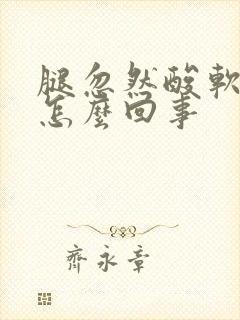 腿忽然酸軟
怎麼回事
齊永章